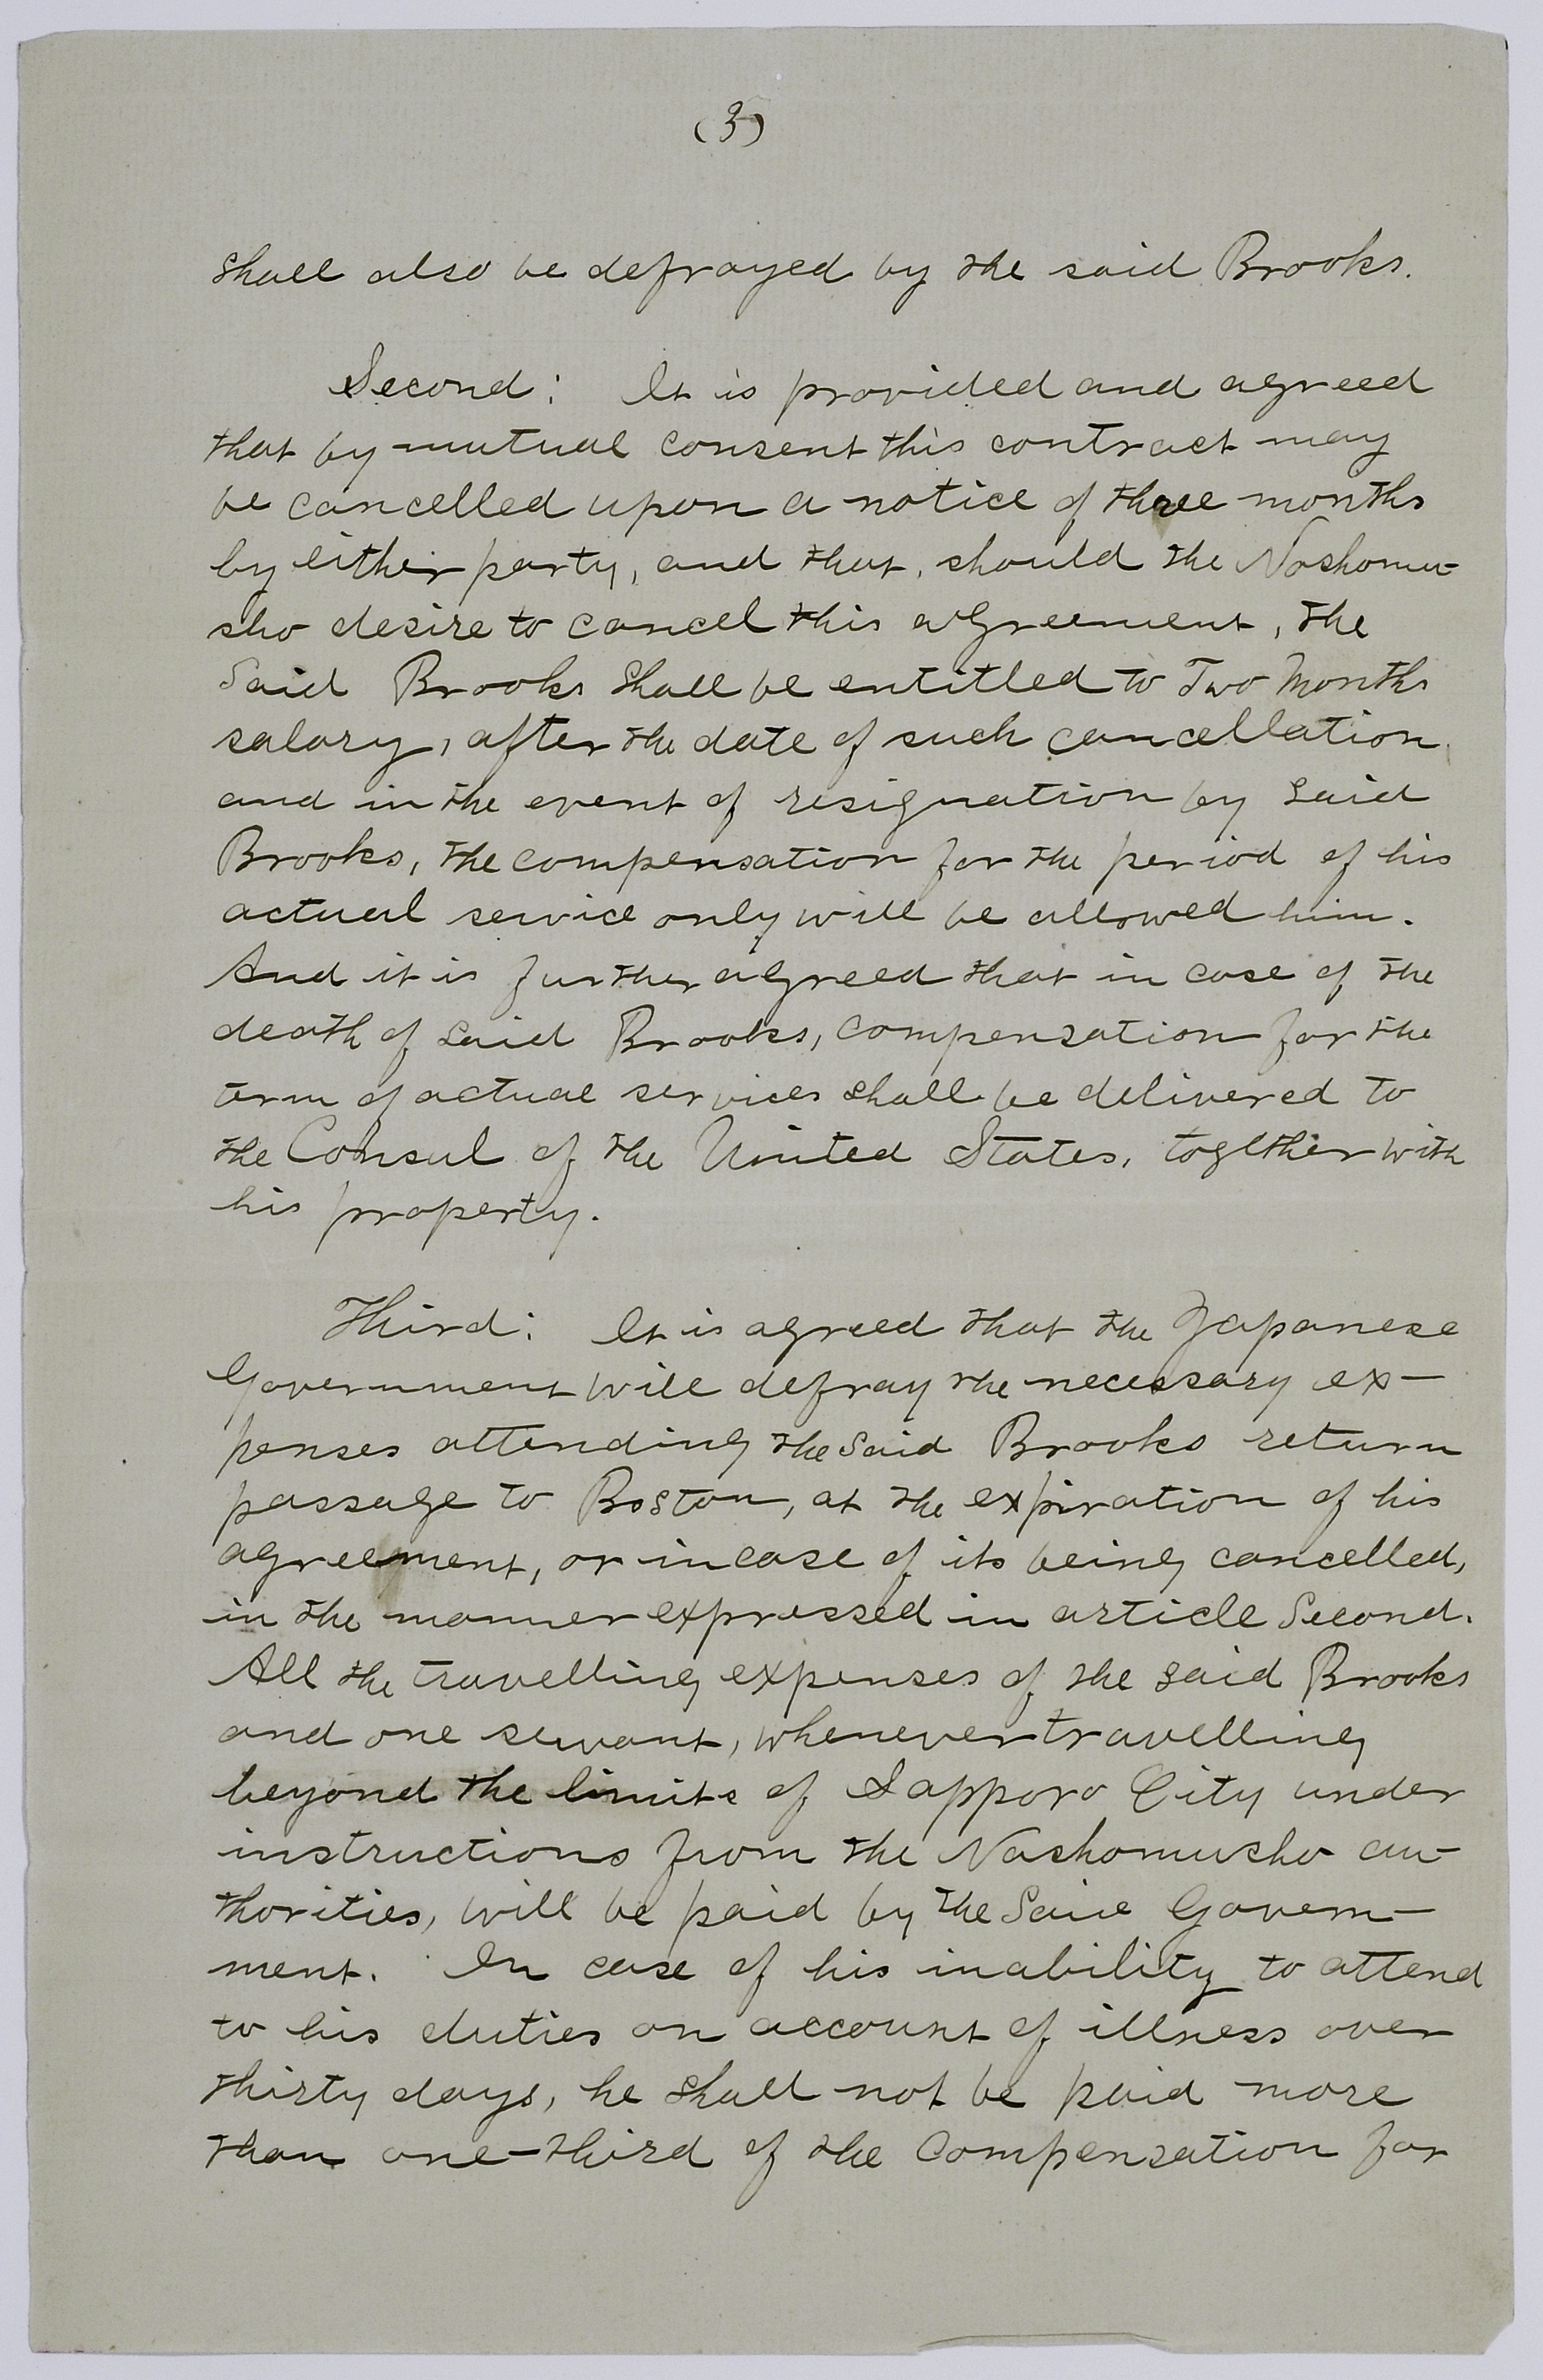 (3)
shall also be defrayed by the said Brooks.
Second: It is provided and agreed
that by mutual consent this contract may
be cancelled upon a notice of three months
by either party, and that, should the Noshomu-
sho desire to cancel this agreement, the
Said Brooks shall be entitled to Two Months
salary, after the date of such cancellation,
and in the event of resignation by said
Brooks, the compensation for the period of his
actual service only will be allowed him.
And it is further agreed that in case of the
death of said Brooks, compensation for the
term of actual services shall be delivered to
the Consul of the United States, together with
his property.
Third: It is agreed that the Japanese
Government will defray the necessary ex-
penses attending the Said Brooks return
passage to Boston, at the expiration of his
agreement, or in case of its being cancelled,
in the manner expressed in article Second.
All the travelling expenses of the said Brooks
and one servant, whenever travelling
beyond the limits of Sapporo City under
instructions from the Noshomusho au-
thorities, will be paid by the Said Govern-
ment. In case of his inability to attend
to his duties on account of illness over
thirty days, he shall not be paid more
than one-third of the Compensation for